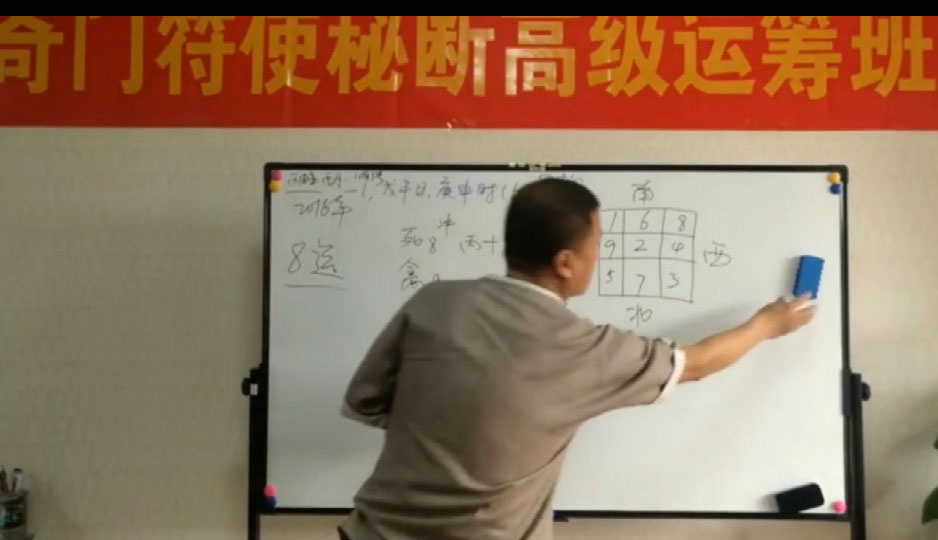 奇门符使秘断高级运筹班
戊午日,庚申时
2016年
8运
冲
8
丙+
禽
南
1 6 8
9 2 4
西
5 7 3
北